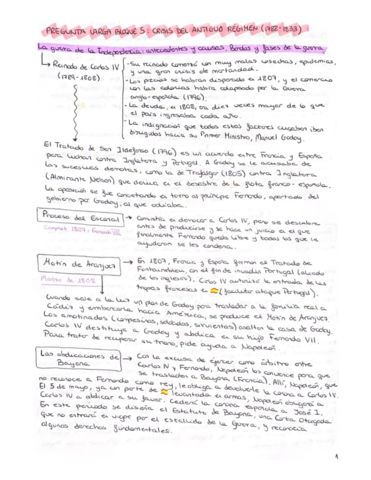 PREGUNTA LARGA BLOQUE 5: CRISIS DEL ANTIGUO RÉGIMEN (1788-1833)
La guerra de la Independencia: antecedentes y causas. Bandos y fases de la guerra.
Reinado de Carlos IV
(1789-1808)
- Su reinado comenzó con muy malas cosechas, epidemias,
y una gran crisis de mortandad.
despoblados a 1807, y el comercio
con las colonias había colapsado por la Guerra
anglo-española (1796).
- La deuda, a 1808, era diez veces mayor de lo que
el país ingresaba cada año.
- La indignación que todos estos factores causaban iban
dirigidos hacia su Primer Ministro, Manuel Godoy.
El Tratado de San Ildefonso (1796) es un acuerdo entre Francia y España
para luchar contra Inglaterra y Portugal. A Godoy se le acusaba de
las sucesivas derrotas, como la de Trafalgar (1805) contra Inglaterra
(Almirante Nelson) que deriva en el desastre de la flota franco-española.
La oposición se fue concretando en torno al príncipe Fernando, apartado del
gobierno por Godoy, al que odiaba.
Proceso del Escorial
1807:
Consistía en derrocar a Carlos IV, pero se descubre
antes de producirse y se hace un juicio en el que
finalmente Fernando queda libre y todos los que le
ayudaron se les condena.
Motín de Aranjuez
Marzo de 1808
En 1807, Francia y España firman el Tratado de
Fontainebleau, con el fin de invadir Portugal (aliado
de los ingleses). Carlos IV autoriza la entrada de las
tropas francesas a Portugal).
Cuando sale a la luz un plan de Godoy para trasladar a la familia real a
Cádiz y embarcarla hacia América, se produce el Motín de Aranjuez.
Los amotinados (campesinos, soldados, sirvientes) asaltan la casa de Godoy.
Carlos IV destituye a Godoy y abdica en su hijo Fernando VII.
Para tratar de recuperar su trono, pide ayuda a Napoleón.
Las abdicaciones de
Bayona
Con la excusa de ejercer como árbitro entre
Carlos IV y Fernando, Napoleón los convence para que
se trasladen a Bayona (Francia). Allí, Napoleón, que
no reconoce a Fernando como rey, le obliga a devolverle la corona a Carlos IV.
El 5 de mayo, ya con parte de levantada en armas, Napoleón obliga a
Carlos IV a abdicar a su favor. Cederá la corona española a José I.
En este período se diseña el Estatuto de Bayona, una Carta Otorgada
que no entrará en vigor por el estallido de la Guerra, y reconocía
algunos derechos fundamentales.
1